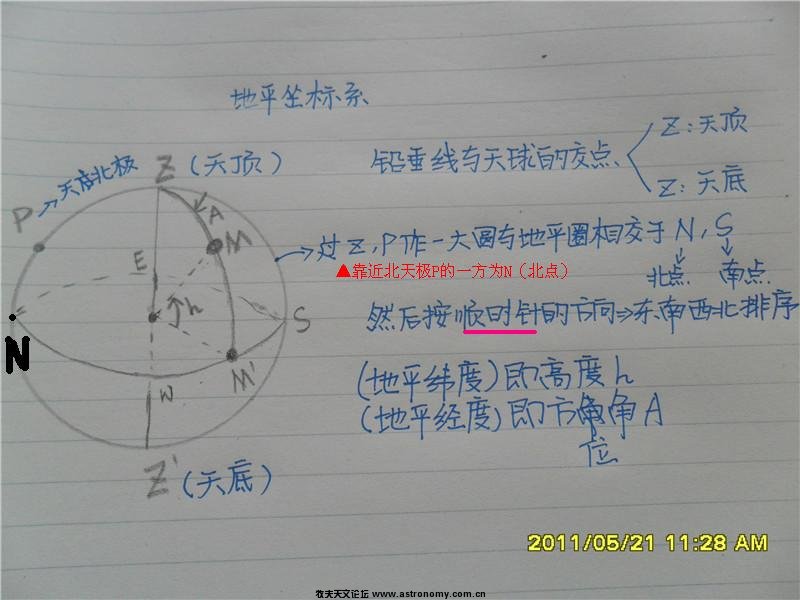 地平坐标系
Z (天顶)
P → 天底北极
A
M
E
h
N
S
M'
W
Z' (天底)
铅垂线与天球的交点
Z: 天顶
Z: 天底
→ 过Z, P作一大圆与地平圈相交于N, S
▲靠近北天极P的一方为N（北点）
北点 南点
然后按顺时针的方向⇒东南西北排序
(地平纬度) 即高度h
(地平经度) 即方角A
位
2011/05/21 11:28 AM
牧夫天文论坛 www.astronomy.com.cn